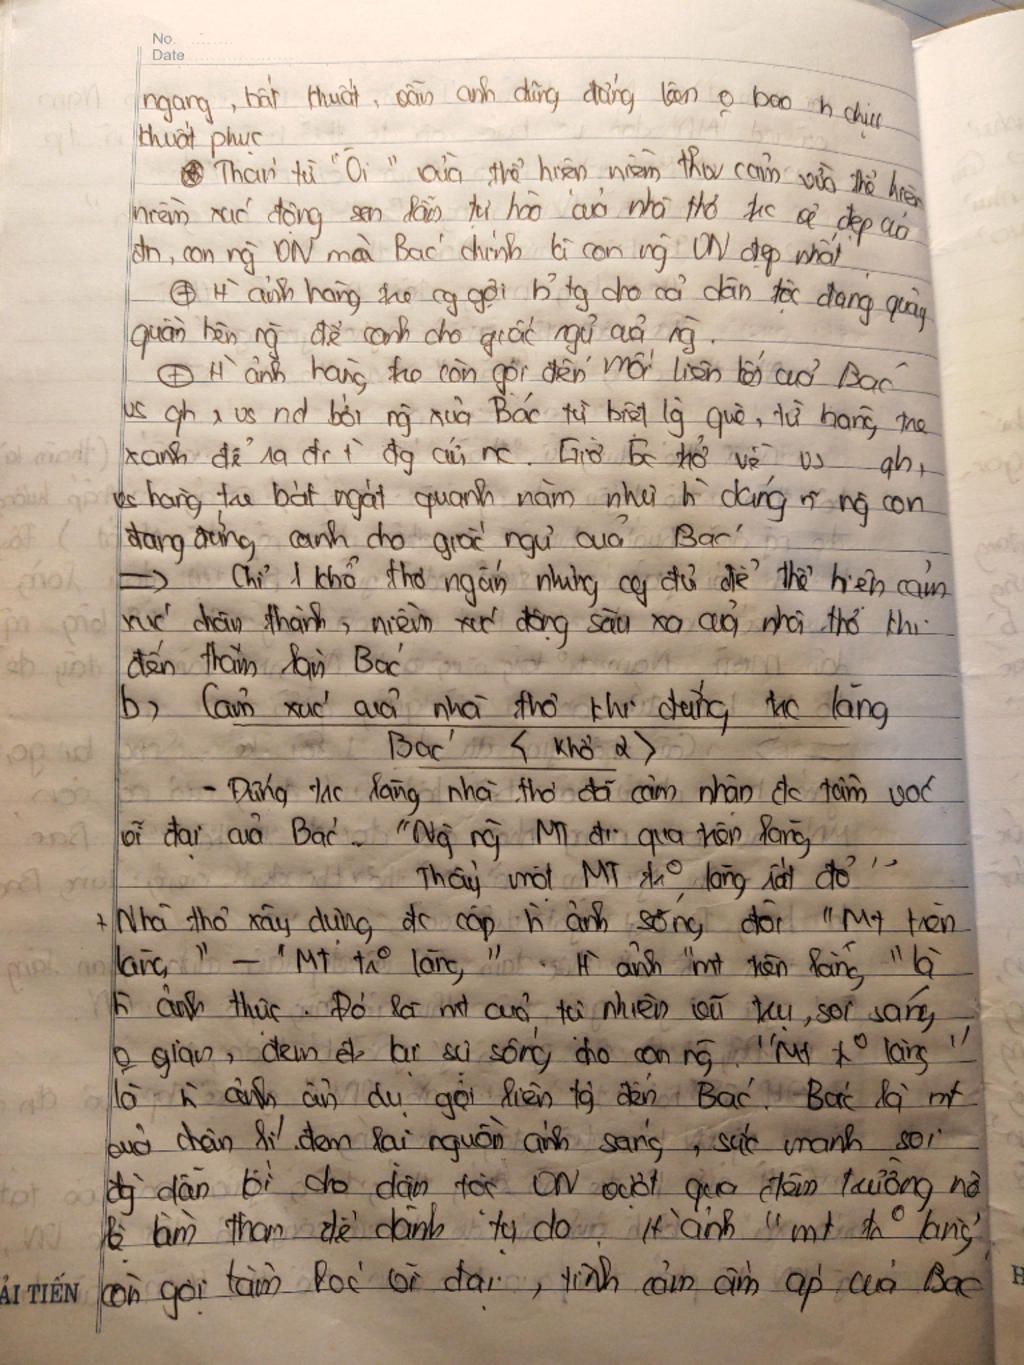 No.
Date
ngang, bất khuất, vẫn anh dũng đứng lên bao h chịu
khuất phục
⊕ Thán từ "Ôi" vừa thể hiện niềm thư cảm vừa thể hiện
niềm xúc động xen lẫn tự hào của nhà thơ trc đẹp của
đn, con ng VN mà Bác chính là con ng VN đẹp nhất
⊕ H ảnh hàng tre cg gợi b tg cho cả dân tộc đang quây
quần bên ng để canh cho giấc ngủ của ng.
⊕ H ảnh hàng tre còn gợi đến mối liên của Bác
vs qh, vs nd bởi ng xưa Bác từ biệt lg quê, từ hàng tre
xanh để ra đi t đg cứu nc. Giờ Bác trở về vs qh,
vs hàng tre bát ngát quanh năm như h dáng ng con
đang đứng canh cho giấc ngủ của Bác
=> Chỉ 1 khổ thơ ngắn nhưng cg đủ để thể hiện cảm
xúc chân thành, niềm xúc động sâu xa của nhà thơ khi
đến thăm lăng Bác
b, Cảm xúc của nhà thơ khi đứng trc lăng
Bác < khổ 2 >
- Đứng trc lăng nhà thơ đã cảm nhận đc tầm vóc
vĩ đại của Bác. "Ng ng MT đi qua trên lăng
Thấy một MT tr° lăng rất đỏ"
+ Nhà thơ xây dựng đc cặp h ảnh sóng đôi "MT trên
lăng" - "MT tr° lăng". H ảnh "mt trên lăng" là
h ảnh thực. Đó là mt của tự nhiên vũ trụ, soi sáng
gian, đem lại sự sống cho con ng. "MT tr° lăng"
là h ảnh ẩn dụ gợi liên tg đến Bác. Bác là mt
của chân lí đem lại nguồn ánh sáng, sức mạnh soi
đg dẫn lối cho dân tộc VN vượt qua đêm trường nô
lệ lầm than để dành tự do. H ảnh "mt tr° lăng"
còn gợi tầm vóc vĩ đại, tình cảm ấm áp của Bác
ẢI TIẾN
H